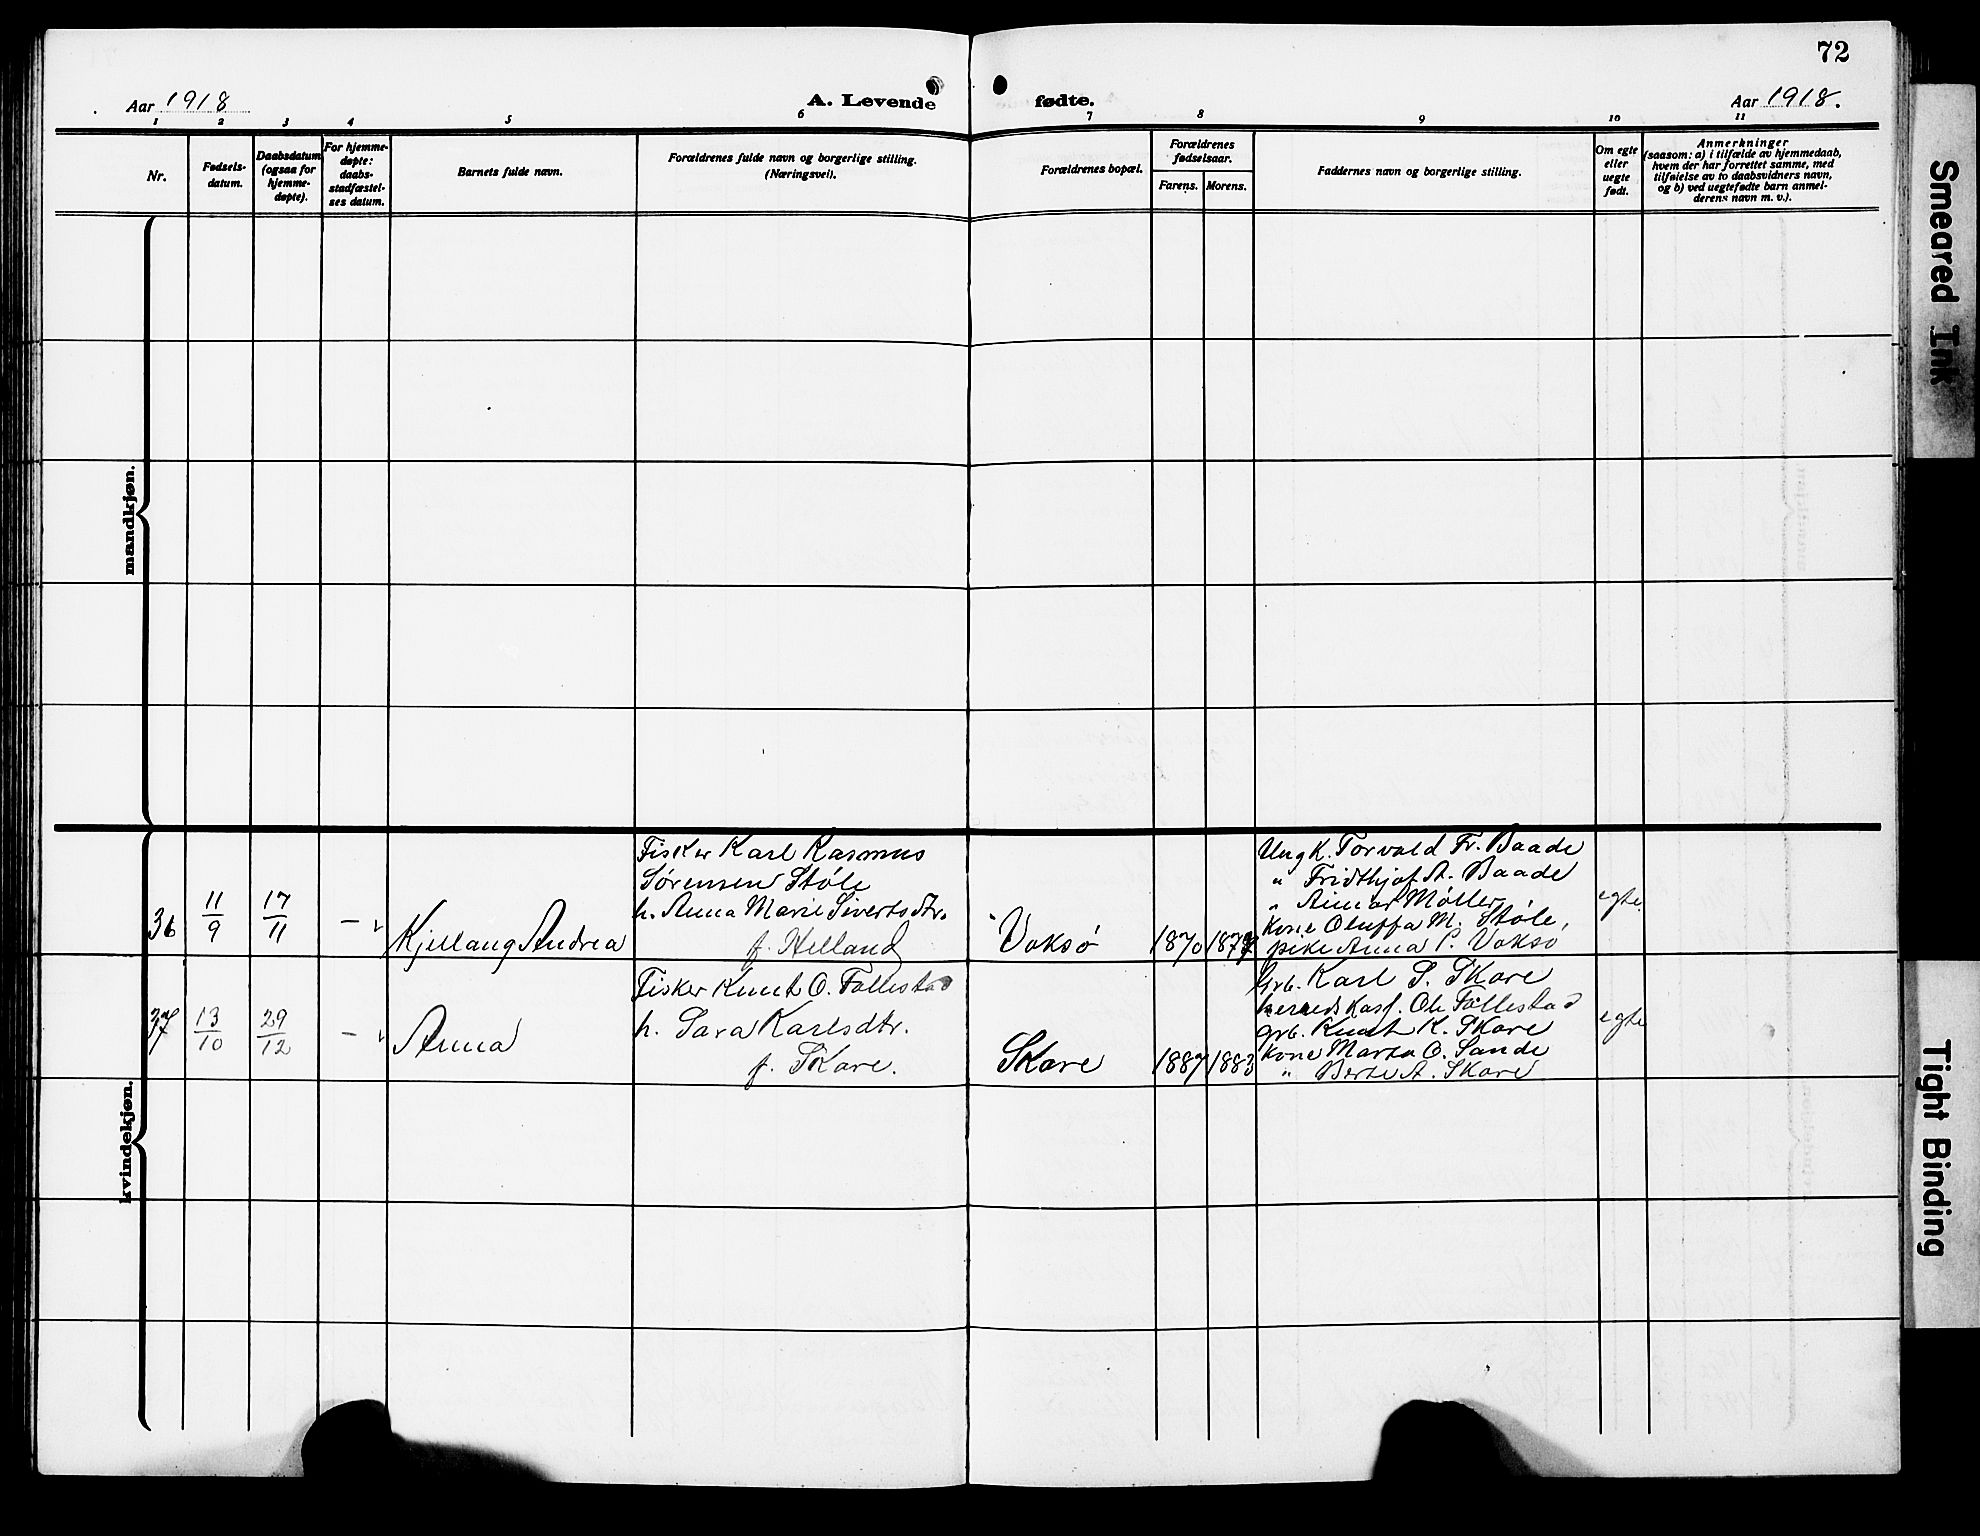 72
Aar 1918
A. Levende fødte.
Aar 1918.
1 2 3 4 5 6 7 8 9 10 11
Nr.
Fødsels-
datum.
Daabsdatum
(ogsaa for
hjemme-
døpte).
For hjemme-
døpte:
daabs-
stadfæstel-
ses datum.
Barnets fulde navn.
Forældrenes fulde navn og borgerlige stilling.
(Næringsvei).
Forældrenes bopæl.
Forældrenes
fødselsaar.
Farens. Morens.
Faddernes navn og borgerlige stilling.
Om egte
eller
uegte
født.
Anmerkninger
(saasom: a) i tilfælde av hjemmedaab,
hvem der har forrettet samme, med
tilføielse av to daabsvidners navn,
og b) ved uegtefødte barn anmel-
derens navn m. v.).
mandkjøn.
kvindekjøn.
36
11/9
17/11
—
Kjellaug Andrea
Fisker Karl Rasmus
Sørensen Støle
h. Anna Marie Sivertsdtr.
f. Helland
Voksø
1870
Ungk. Torvald Fr. Baade
" Fridthjof A. Baade
" Møller
Kone Oluffa M. Støle,
pike Anna P. Voksø
egte.
37
13/10
29/12
—
Anna
Fisker Knut O. Follestad
h. Sara Karlsdtr.
f. Skare.
Skare
1887
1883
Grb. Karl P. Skare
Ole Follestad
grb. Knut K. Skare
Kone Marta O. Sande
" Berte A. Skare
egte
Smeared Ink
Tight Binding